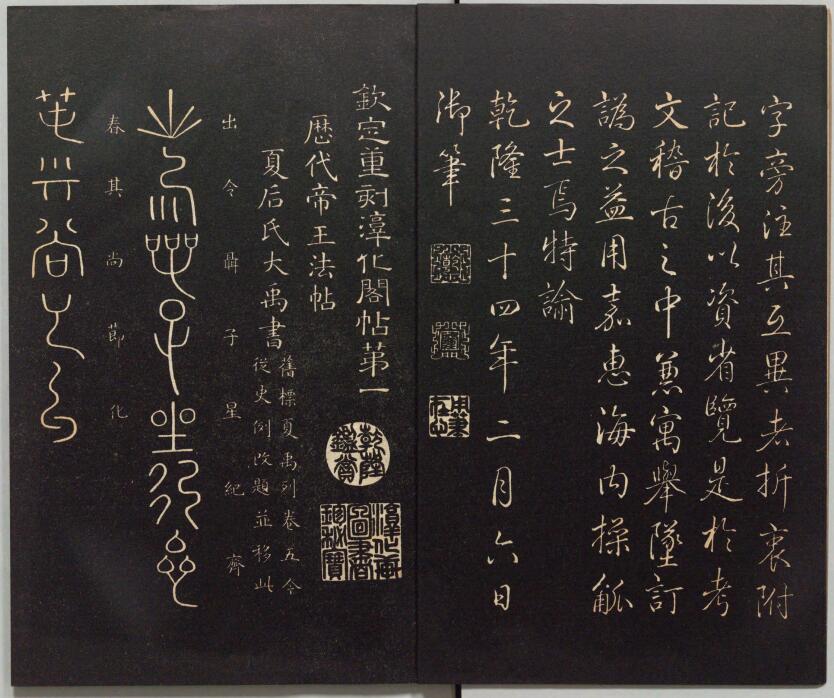 字旁注其互異者折衷附
記於後以資省覽是於考
文稽古之中兼寓舉墜訂
譌之益用嘉惠海內操觚
之士焉特諭
乾隆三十四年二月六日
御筆
欽定重刻淳化閣帖第一
乾隆鑑賞
淳化軒圖書珍秘寶
歷代帝王法帖
夏后氏大禹書
舊標夏禹列卷五今
從史例改題並移此
出令聶子星紀齊
春其尚節化